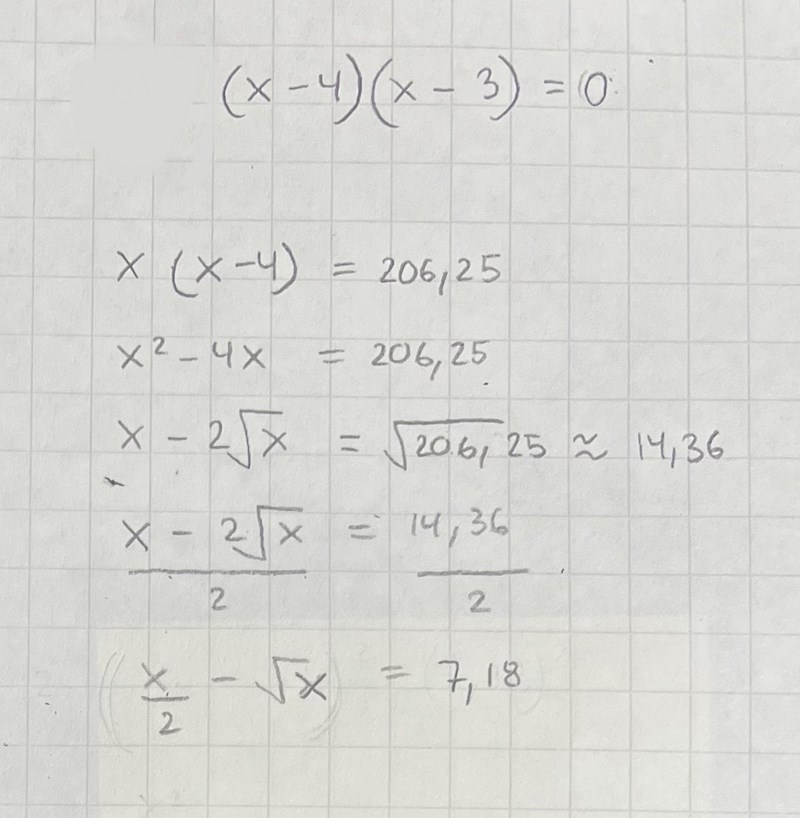 (x - 4)(x - 3) = 0
x (x - 4) = 206,25
x² - 4x = 206,25
x - 2√x = √206,25 ≈ 14,36
(x - 2√x)/2 = 14,36/2
(x/2 - √x) = 7,18